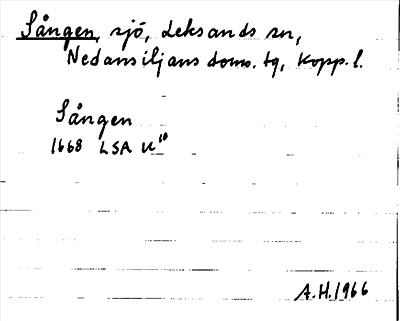 Sången, sjö, Leksands sn,
Nedansiljans doms. tg, Kopp. l.
Sången
1668 LSA U¹⁰
A.H. 1966